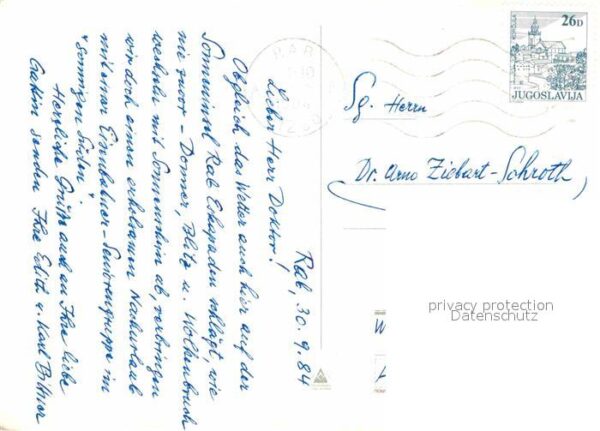 Rab, 30.9.84
Lieber Herr Doktor!
Obgleich das Wetter auch hier auf der
Sonneninsel Rab Eskapaden schlägt, wie
nie zuvor - Donner, Blitz u. Wolkenbruch
wechseln mit Sonnenschein ab, verbringen
wir doch einen erholsamen Naturlaub
mit einer Eisenbahner-Seniorengruppe im
"sonnigen Süden"
Herzliche Grüße auch an Ihre liebe
Gattin senden Ihre Edith u. Karl Bittner
RAB
26D
JUGOSLAVIJA
Sg. Herrn
Dr. Arno Ziebart-Schroth
privacy protection
Datenschutz